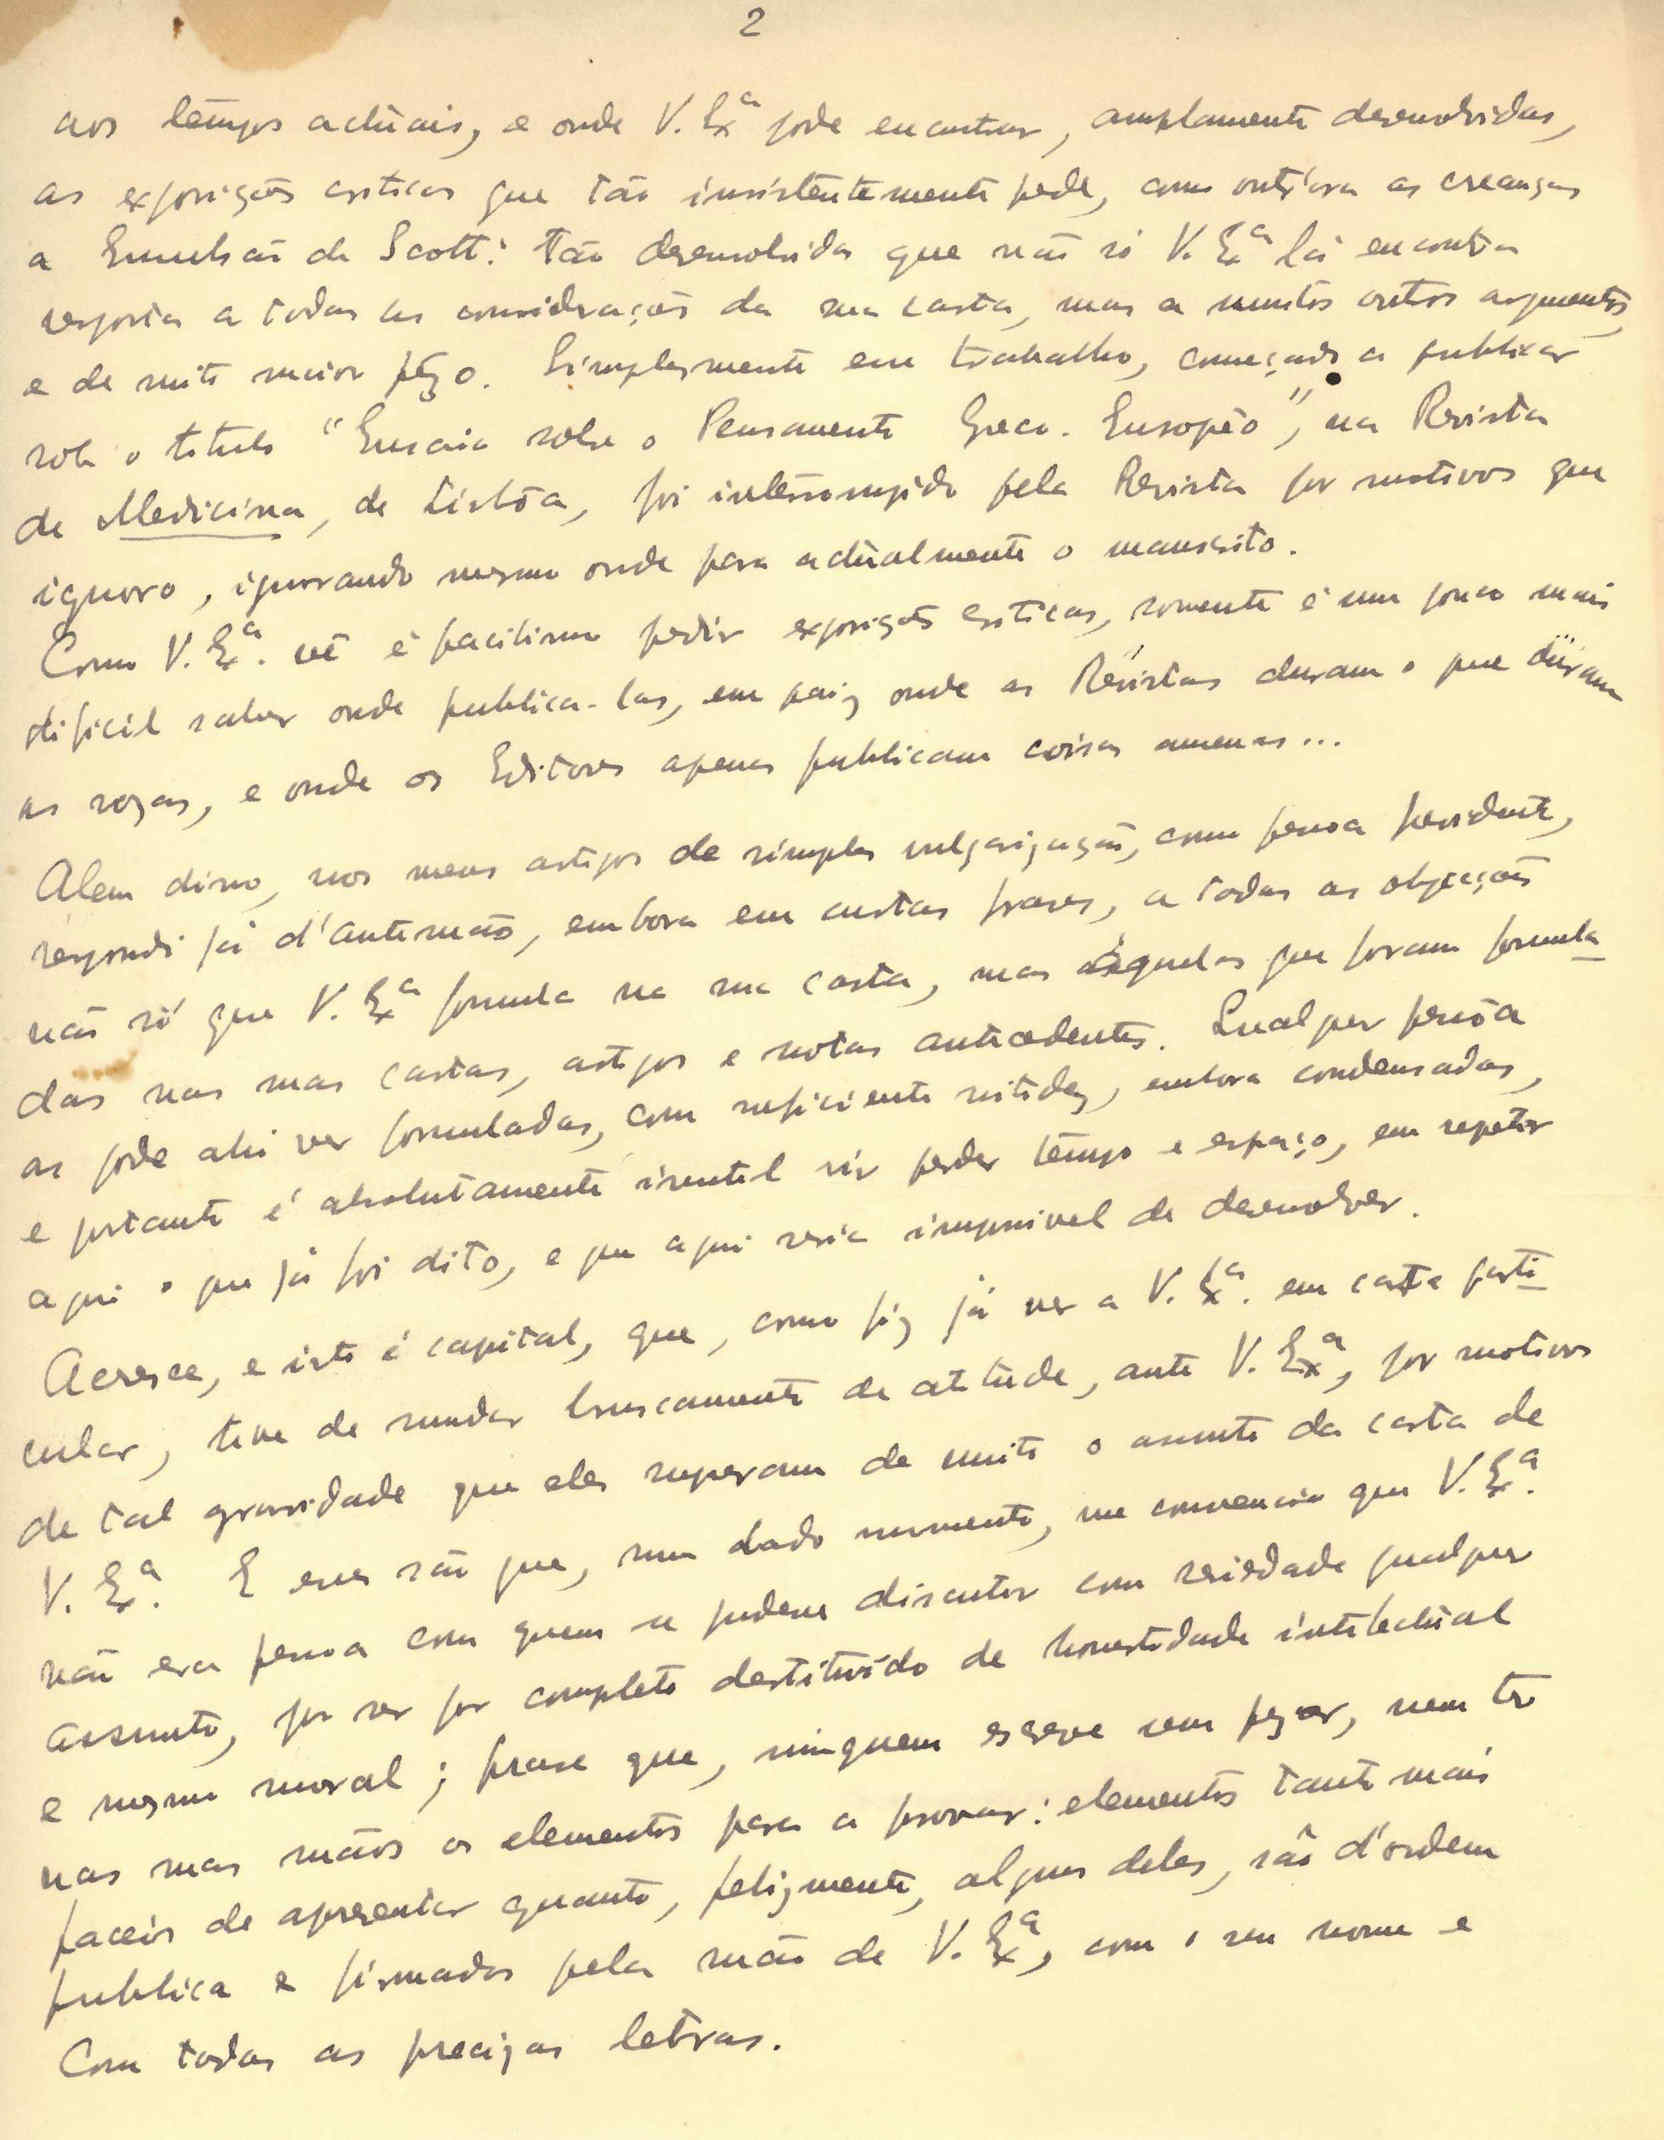 2
aos tempos actuais, e onde V. Exª pode encontrar, amplamente desenvolvidas,
as exposições criticas que tão insistentemente pede, como outr'ora as creanças
a Emulsão de Scott: tão desenvolvidas que não só V. Exª lá encontra
resposta a todas as considerações da sua carta, mas a muitos outros argumentos,
e de muito maior pêzo. Simplesmente esse trabalho, começado a publicar
sob o titulo "Ensaio sobre o Pensamento Greco-Europêo", na Revista
de Medicina, de Lisbôa, foi interrompido pela Revista por motivos que
ignoro, ignorando mesmo onde para actualmente o manuscrito.
Como V. Exª. vê é facilimo pedir exposições criticas, somente é um pouco mais
dificil saber onde publica-las, em paiz onde as Revistas duram o que duram
as rozas, e onde os Editores apenas publicam coisas amenas...
Alem disso, nos meus artigos de simples vulgarização, como pessoa previdente,
respondi já d'antemão, embora em curtas frases, a todas as objecções
não só que V. Exª formula na sua carta, mas áquelas que foram formula-
das nas suas cartas, artigos e notas antecedentes. Qualquer pessôa
as pode ahi ver formuladas, com suficiente nitidez, embora condensadas,
e portanto é absolutamente inutil vir perder tempo e espaço, em repetir
aqui o que já foi dito, e que aqui seria impossivel de desenvolver.
Acresce, e isto é capital, que, como fiz já ver a V. Exª. em carta parti-
cular, tive de mudar bruscamente de atitude, ante V. Exª, por motivos
de tal gravidade que eles superam de muito o assunto da carta de
V. Exª. E esses são que, num dado momento, me convenci que V. Exª.
não era pessoa com quem se pudesse discutir com seriedade qualquer
assunto, por ser por completo destituido de honestidade intelectual
e mesmo moral; frase que, ninguem escreve sem pezar, nem ter
nas suas mãos os elementos para a provar: elementos tanto mais
faceis de apresentar quanto, felizmente, alguns deles, são d'ordem
publica e firmados pela mão de V. Exª, com o seu nome e
Com todas as precizas letras.